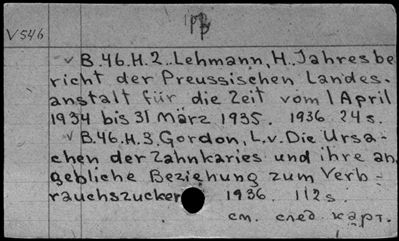 V546
v B.46.H.2. Lehmann, H. Jahresbe
richt der Preussischen Landes-
anstalt für die Zeit vom 1 April
1934 bis 31 März 1935. 1936. 24 s.
v B.46.H.3. Gordon, L.v. Die Ursa-
chen der Zahnkaries und ihre an
gebliche Beziehung zum Verb-
rauchszucker 1936. 112 s.
см. след. карт.